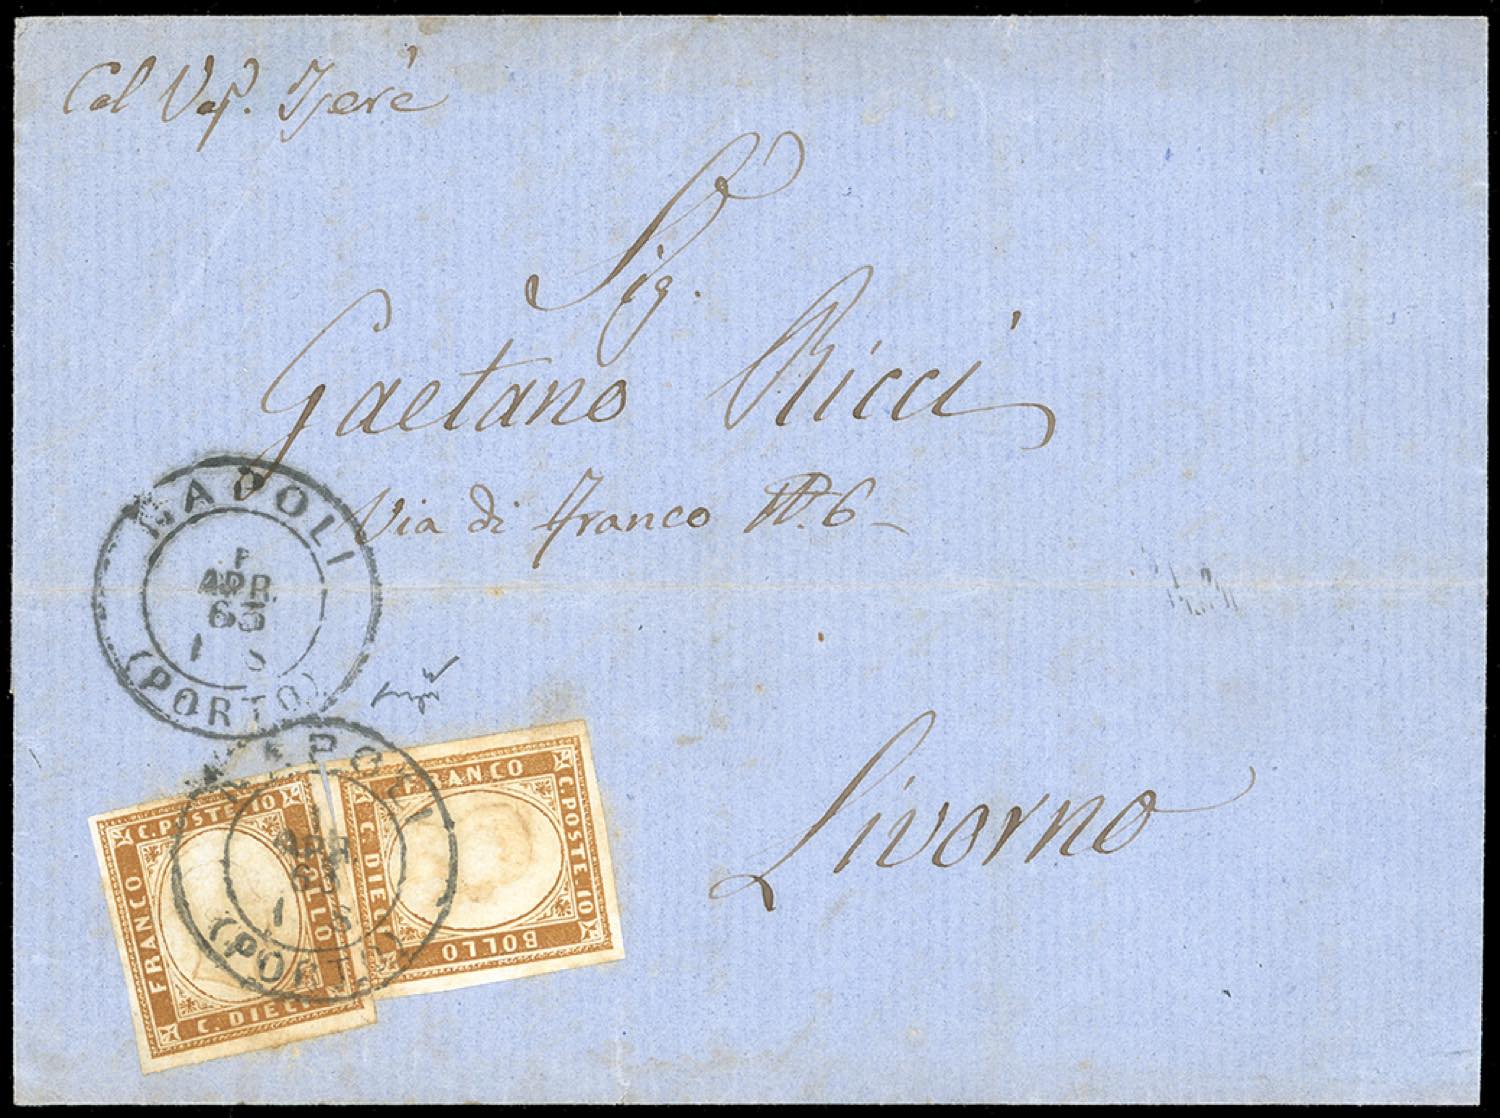 Col Vap. Iserè
Sig.
Gaetano Ricci
Via di Franco N. 6
Livorno
NAPOLI
APR.
63
(PORTO)
NAPOLI
1
APR.
63
1 S
(PORTO)
C. POSTE. 10
FRANCO
BOLLO
C. DIECI
FRANCO
C. POSTE. 10
C. DIECI
BOLLO